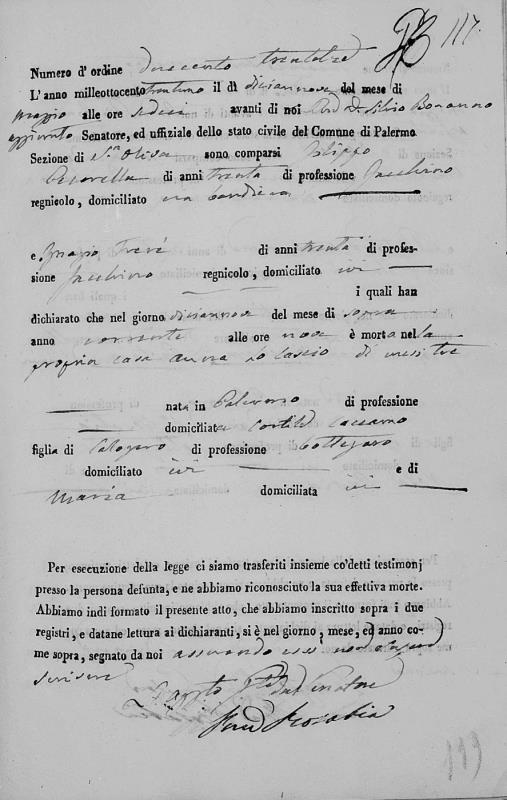 117.
Numero d' ordine duecento trentatre
L'anno milleottocento trentuno il di diciannove del mese di
maggio alle ore sedici avanti di noi D. Silvio Bonanno
aggiunto Senatore, ed uffiziale dello stato civile del Comune di Palermo
Sezione di S.a Oliva sono comparsi Filippo
di anni trenta di professione Facchino
regnicolo, domiciliato via bandiera
e Ignazio di anni trenta di profes-
sione Facchino regnicolo, domiciliato ivi
i quali han
dichiarato che nel giorno diciannove del mese di sopra
anno corrente alle ore nove è morta nella
propria casa Lo Cascio di mesi tre
nata in Palermo di professione
domiciliata Cortile Caccamo
figlia di Calogero di professione Bottegaro
domiciliato ivi e di
Maria domiciliata ivi
Per esecuzione della legge ci siamo trasferiti insieme co'detti testimonj
presso la persona defunta, e ne abbiamo riconosciuto la sua effettiva morte.
Abbiamo indi formato il presente atto, che abbiamo inscritto sopra i due
registri, e datane lettura ai dichiaranti, si è nel giorno, mese, ed anno co-
me sopra, segnato da noi asserendo essi non sapere
scrivere
Senatore
119